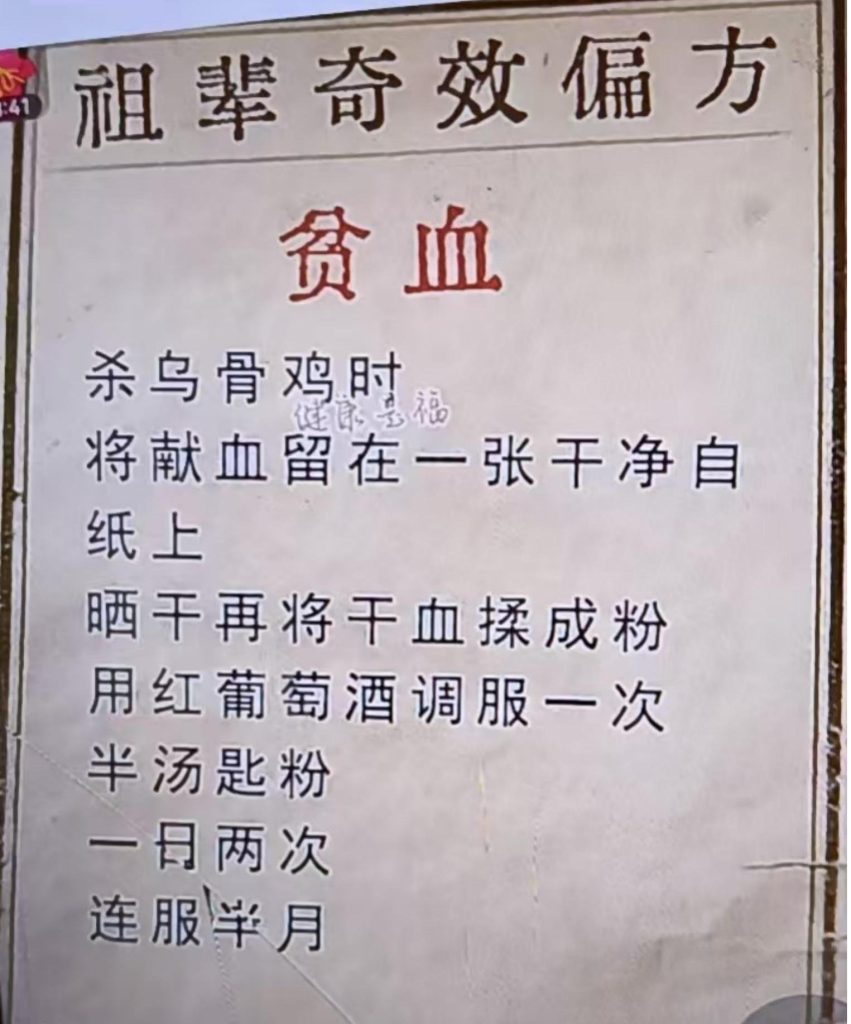 祖辈奇效偏方
贫血
杀乌骨鸡时
健康是福
将献血留在一张干净自
纸上
晒干再将干血揉成粉
用红葡萄酒调服一次
半汤匙粉
一日两次
连服半月